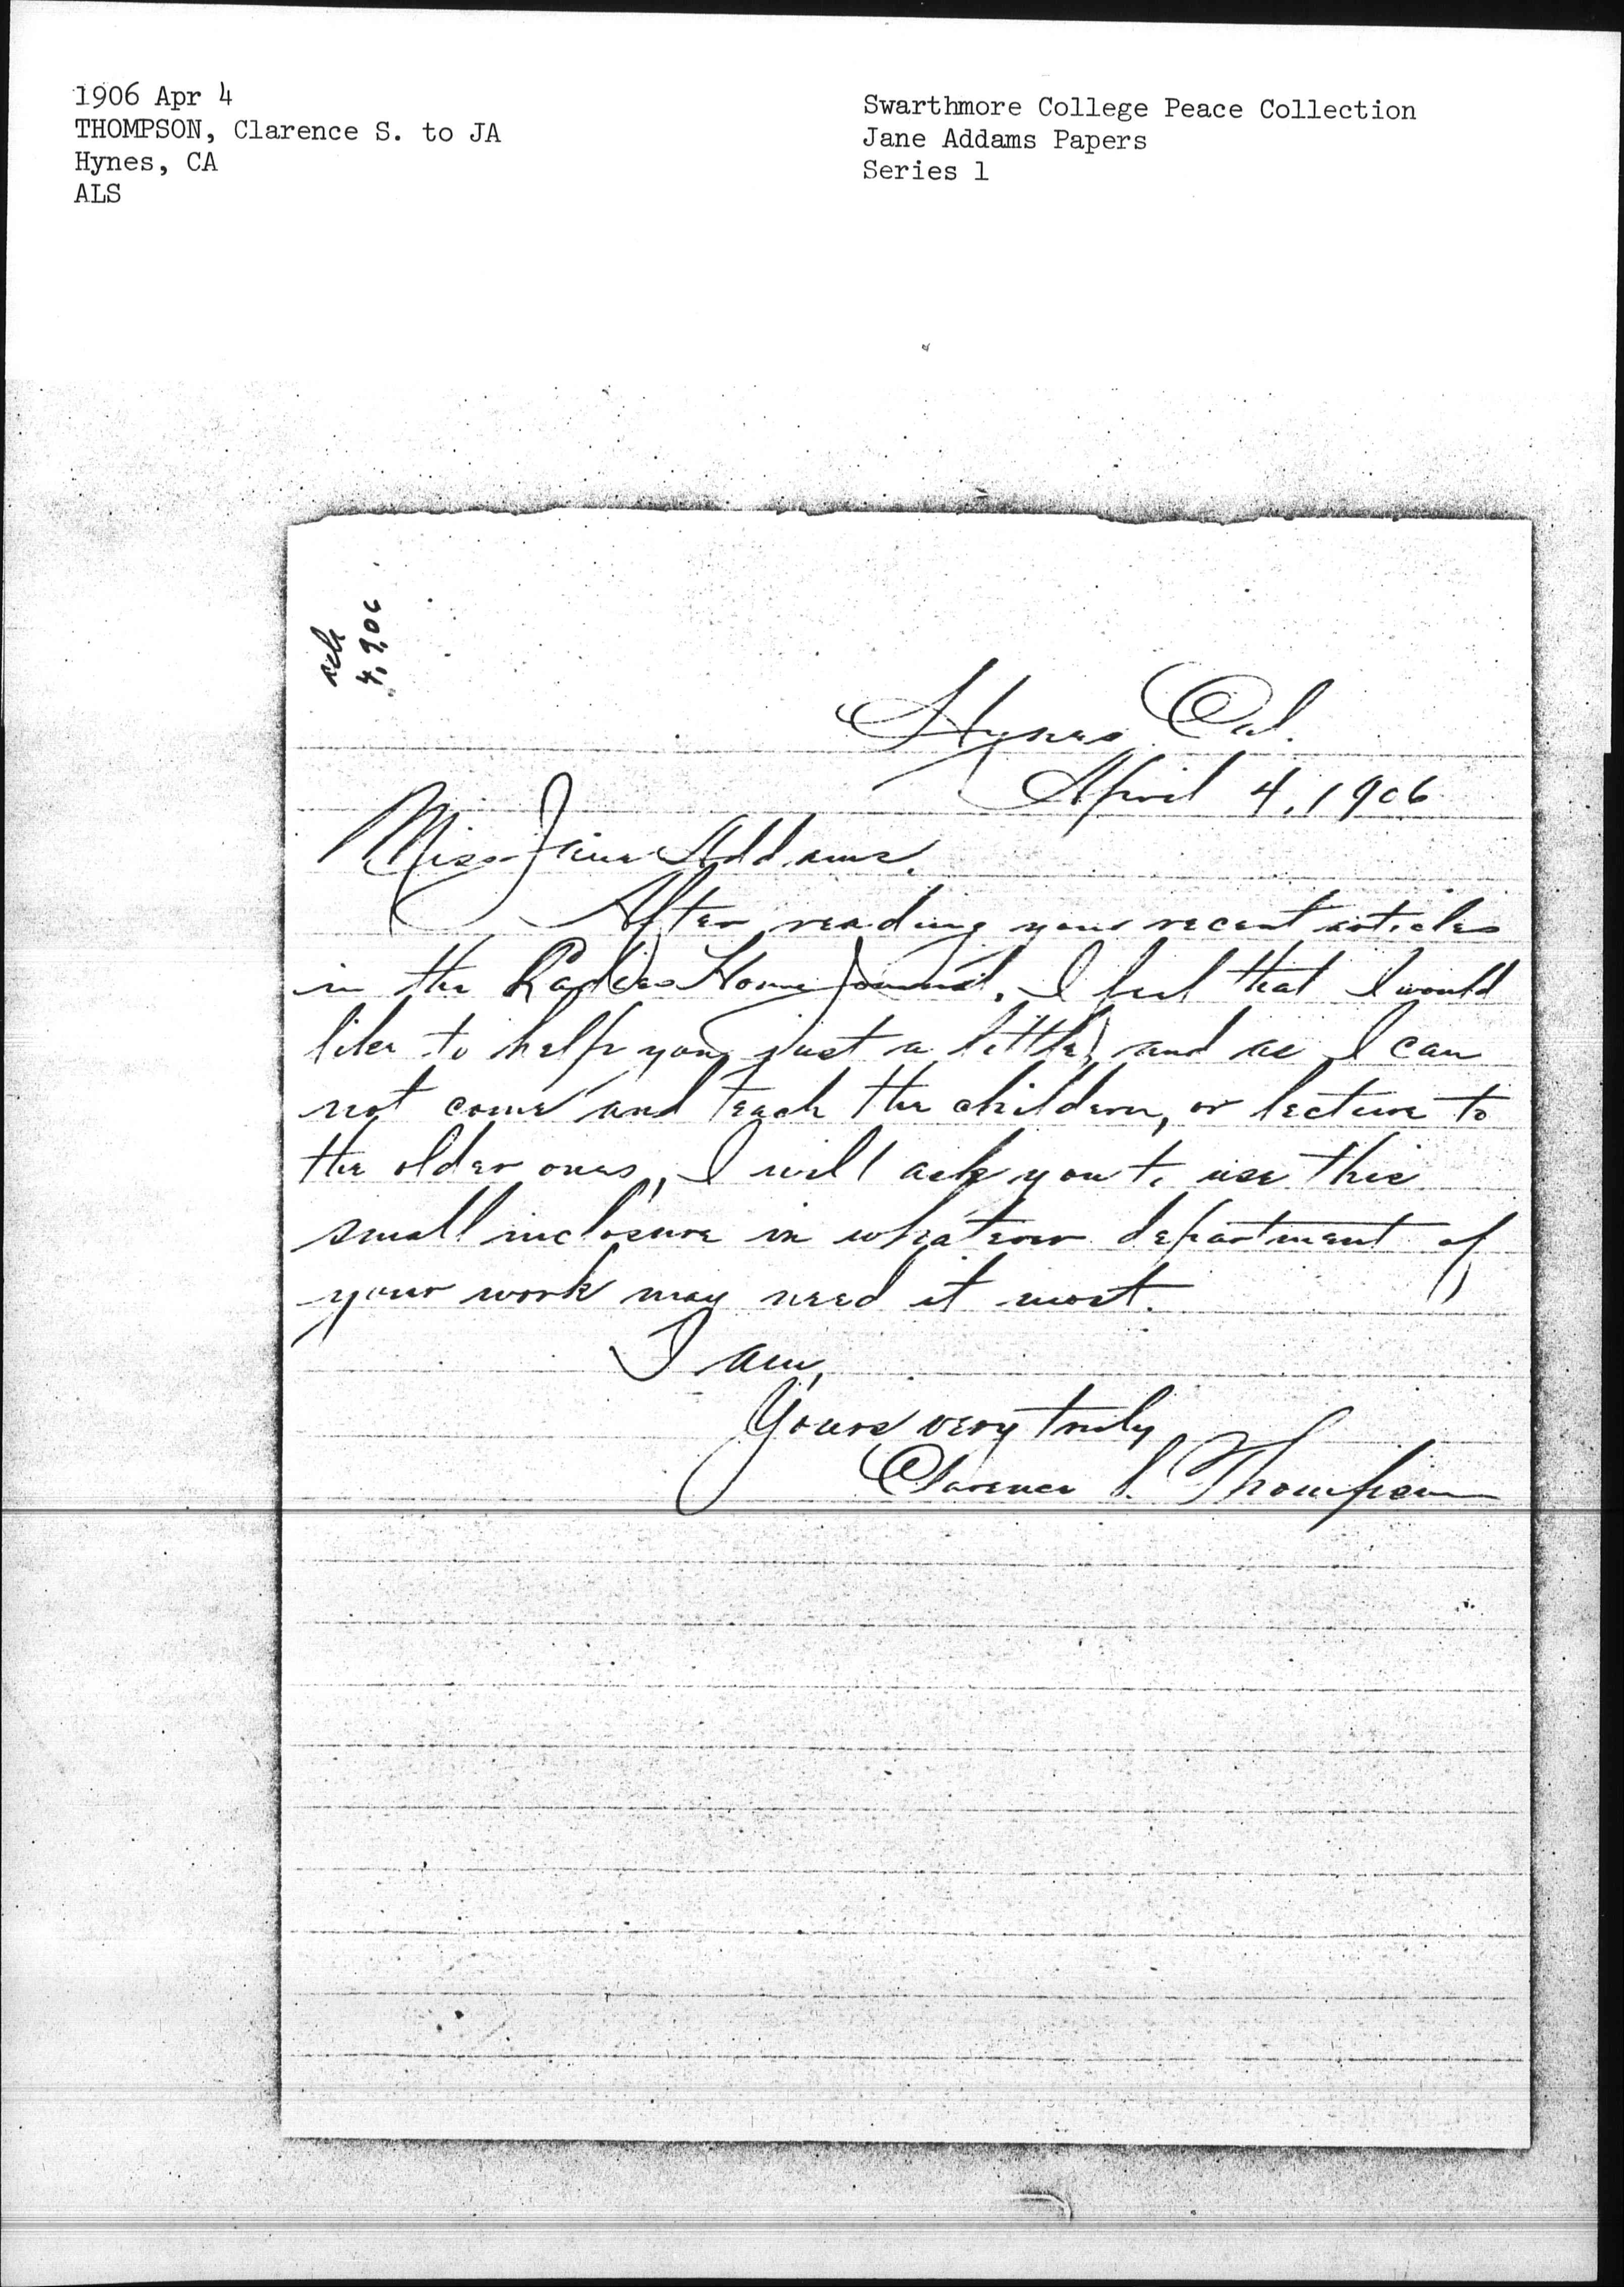 1906 Apr 4
THOMPSON, Clarence S. to JA
Hynes, CA
ALS
Swarthmore College Peace Collection
Jane Addams Papers
Series 1
ack
Hynes Cal.
April 4, 1906
Miss Jane Addams.
After reading your recent articles
in the Ladies Home Journal, I feel that I would
like to help you just a little, and as I can
not come and teach the childern, or lecture to
the older ones, I will ask you to use this
small inclosure in whatever department of
your work may need it most.
I am,
Yours very truly
Clarence S. Thompson